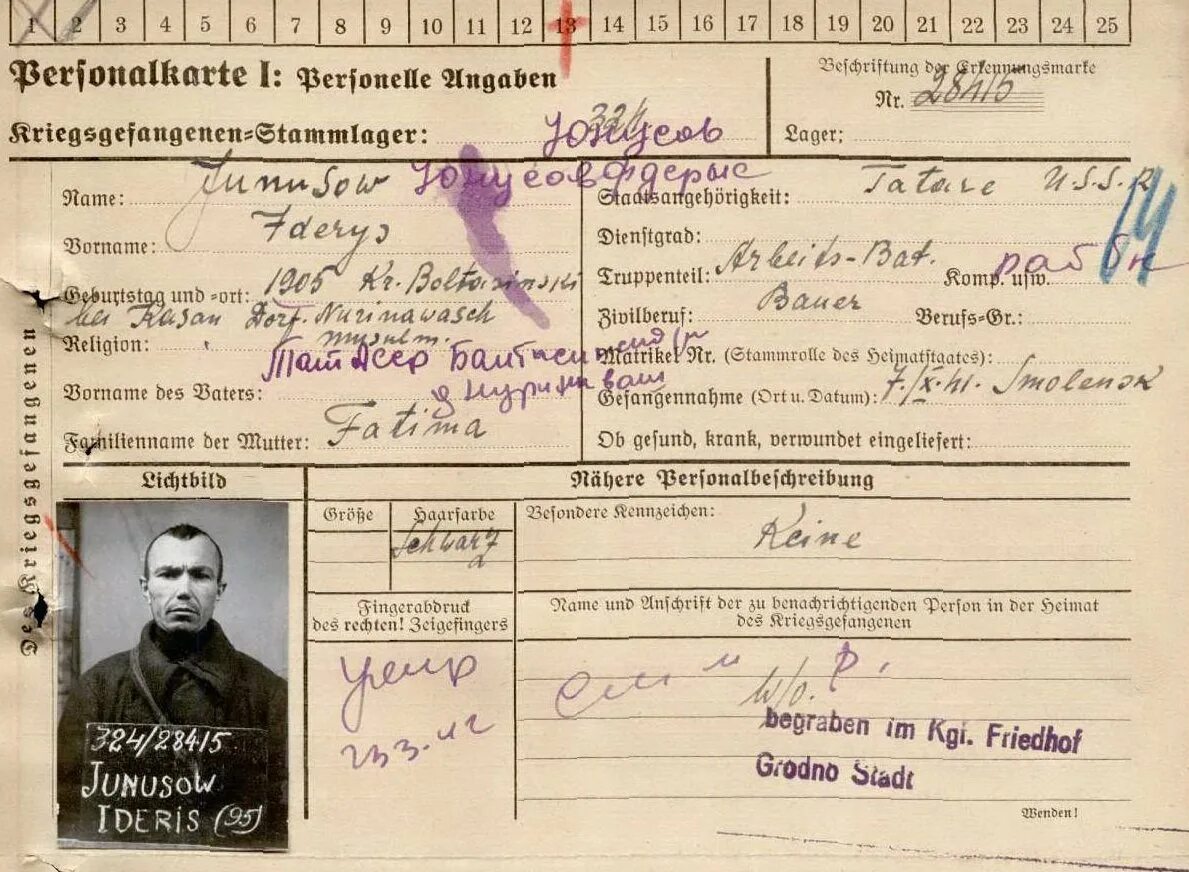 1 2 3 4 5 6 7 8 9 10 11 12 13 14 15 16 17 18 19 20 21 22 23 24 25
Personalkarte I: Personelle Angaben
Kriegsgefangenen-Stammlager: 324
Юнусов
Beschriftung der Erkennungsmarke
Nr. 28415
Lager:
Des Kriegsgefangenen
Name: Junusow
Юнусов Идерыс
Vorname: Iderys
Geburtstag und -ort: 1905 Kr. Boltasinski
bei Kasan Dorf. Nurinawasch
Religion: musulm.
Тат АССР
Vorname des Vaters:
д
Familienname der Mutter: Fatima
Staatsangehörigkeit: Tatare U.S.S.R
Dienstgrad:
Truppenteil: Arbeits-Bat. Komp. usw.
раб бн
Zivilberuf: Bauer Berufs-Gr.:
Matrikel Nr. (Stammrolle des Heimatstaates):
Gefangennahme (Ort u. Datum): 7./X.41. Smolensk
Ob gesund, krank, verwundet eingeliefert:
Lichtbild
Nähere Personalbeschreibung
Größe
Haarfarbe
Schwarz
Besondere Kennzeichen:
Keine
Fingerabdruck
des rechten! Zeigefingers
Умер
23 3. 42
Name und Anschrift der zu benachrichtigenden Person in der Heimat
des Kriegsgefangenen
w/o.
begraben im Kgf. Friedhof
Grodno Stadt
Wenden!
324/28415
JUNUSOW
IDERIS (95)